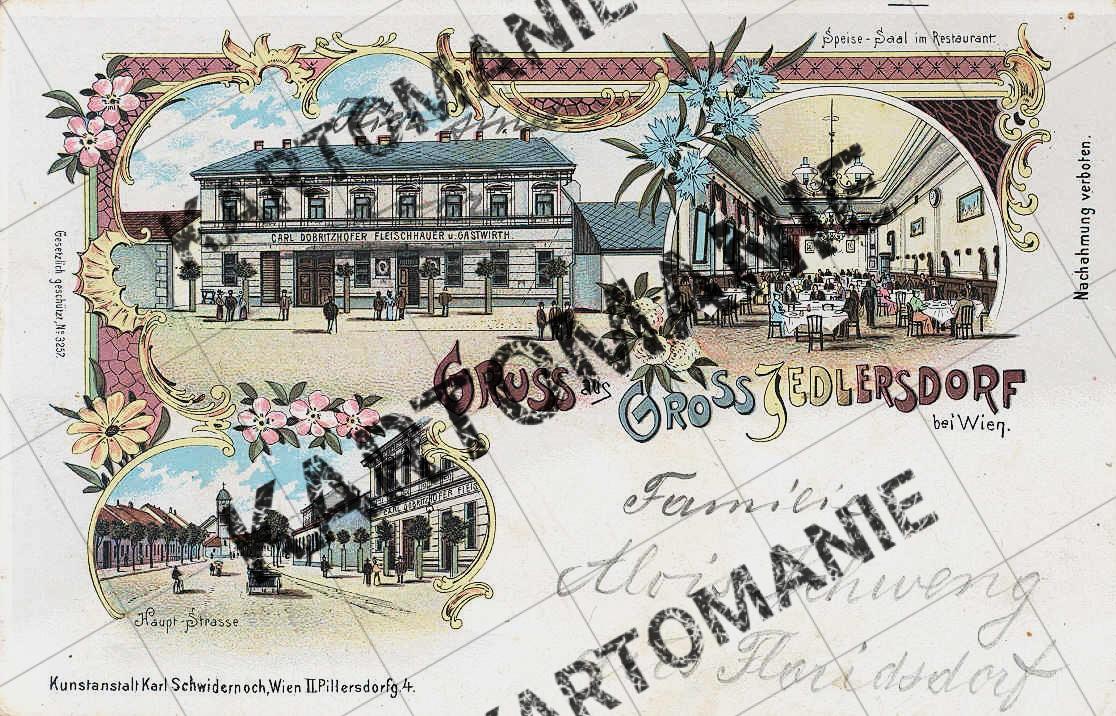 Speise-Saal im Restaurant.
CARL DOBRITZHOFER FLEISCHHAUER u. GASTWIRTH.
Nachahmung verboten.
Gesetzlich geschützt, No 3257.
GRUSS aus GROSS JEDLERSDORF
bei Wien.
CARL DOBRITZHOFER FLEIS
Haupt-Strasse
Familie
Alois Schweng
Floridsdorf
Kunstanstalt Karl Schwidernoch, Wien II. Pillersdorfg. 4.
KARTOMANIE
KARTOMANIE
KARTOMANIE
KARTOMANIE